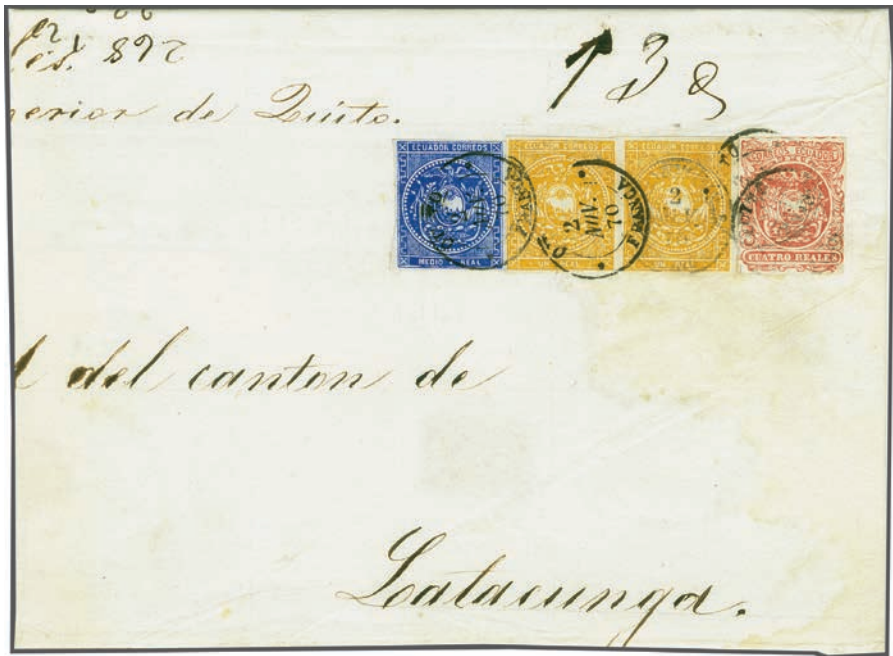 es. 892
erior de Quito.
ECUADOR CORREOS
MEDIO REAL
ECUADOR CORREOS
UN REAL
2
NOV.
70
FRANCA
ECUADOR CORREOS
UN REAL
2
CORREOS ECUADOR
CUATRO REALES
l del canton de
Latacunga.